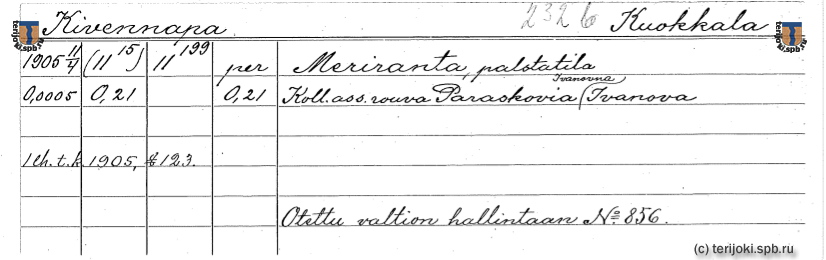 Kivennapa. 232 b Kuokkala
1905 11/4 (11 15) 11 199 per Meriranta, palstatila
Ivanovna
0,0005 0,21 0,21 Koll. ass. rouva Paraskovia (Ivanova
1 ch. t. k. 1905, § 123.
Otettu valtion hallintaan No 856.
terijoki.spb.ru
terijoki.spb.ru
(c) terijoki.spb.ru